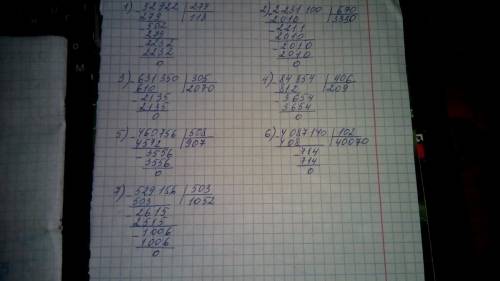 1) -32922 | 279
279 | 118
-502
279
-2232
2232
0
2) -2231100 | 670
2010 | 3330
-2211
2010
-2010
2010
0
3) -631350 | 305
610 | 2070
-2135
2135
0
4) -84854 | 406
812 | 209
-3654
3654
0
5) -460756 | 508
4572 | 907
-3556
3556
0
6) -4087140 | 102
408 | 40070
-714
714
0
7) -529156 | 503
503 | 1052
-2615
2515
-1006
1006
0